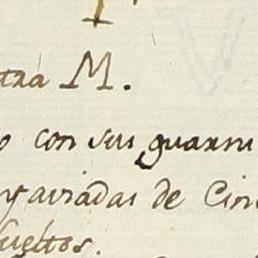 tra M.
o con su guarni
y aviadas de Cin
sueltos.